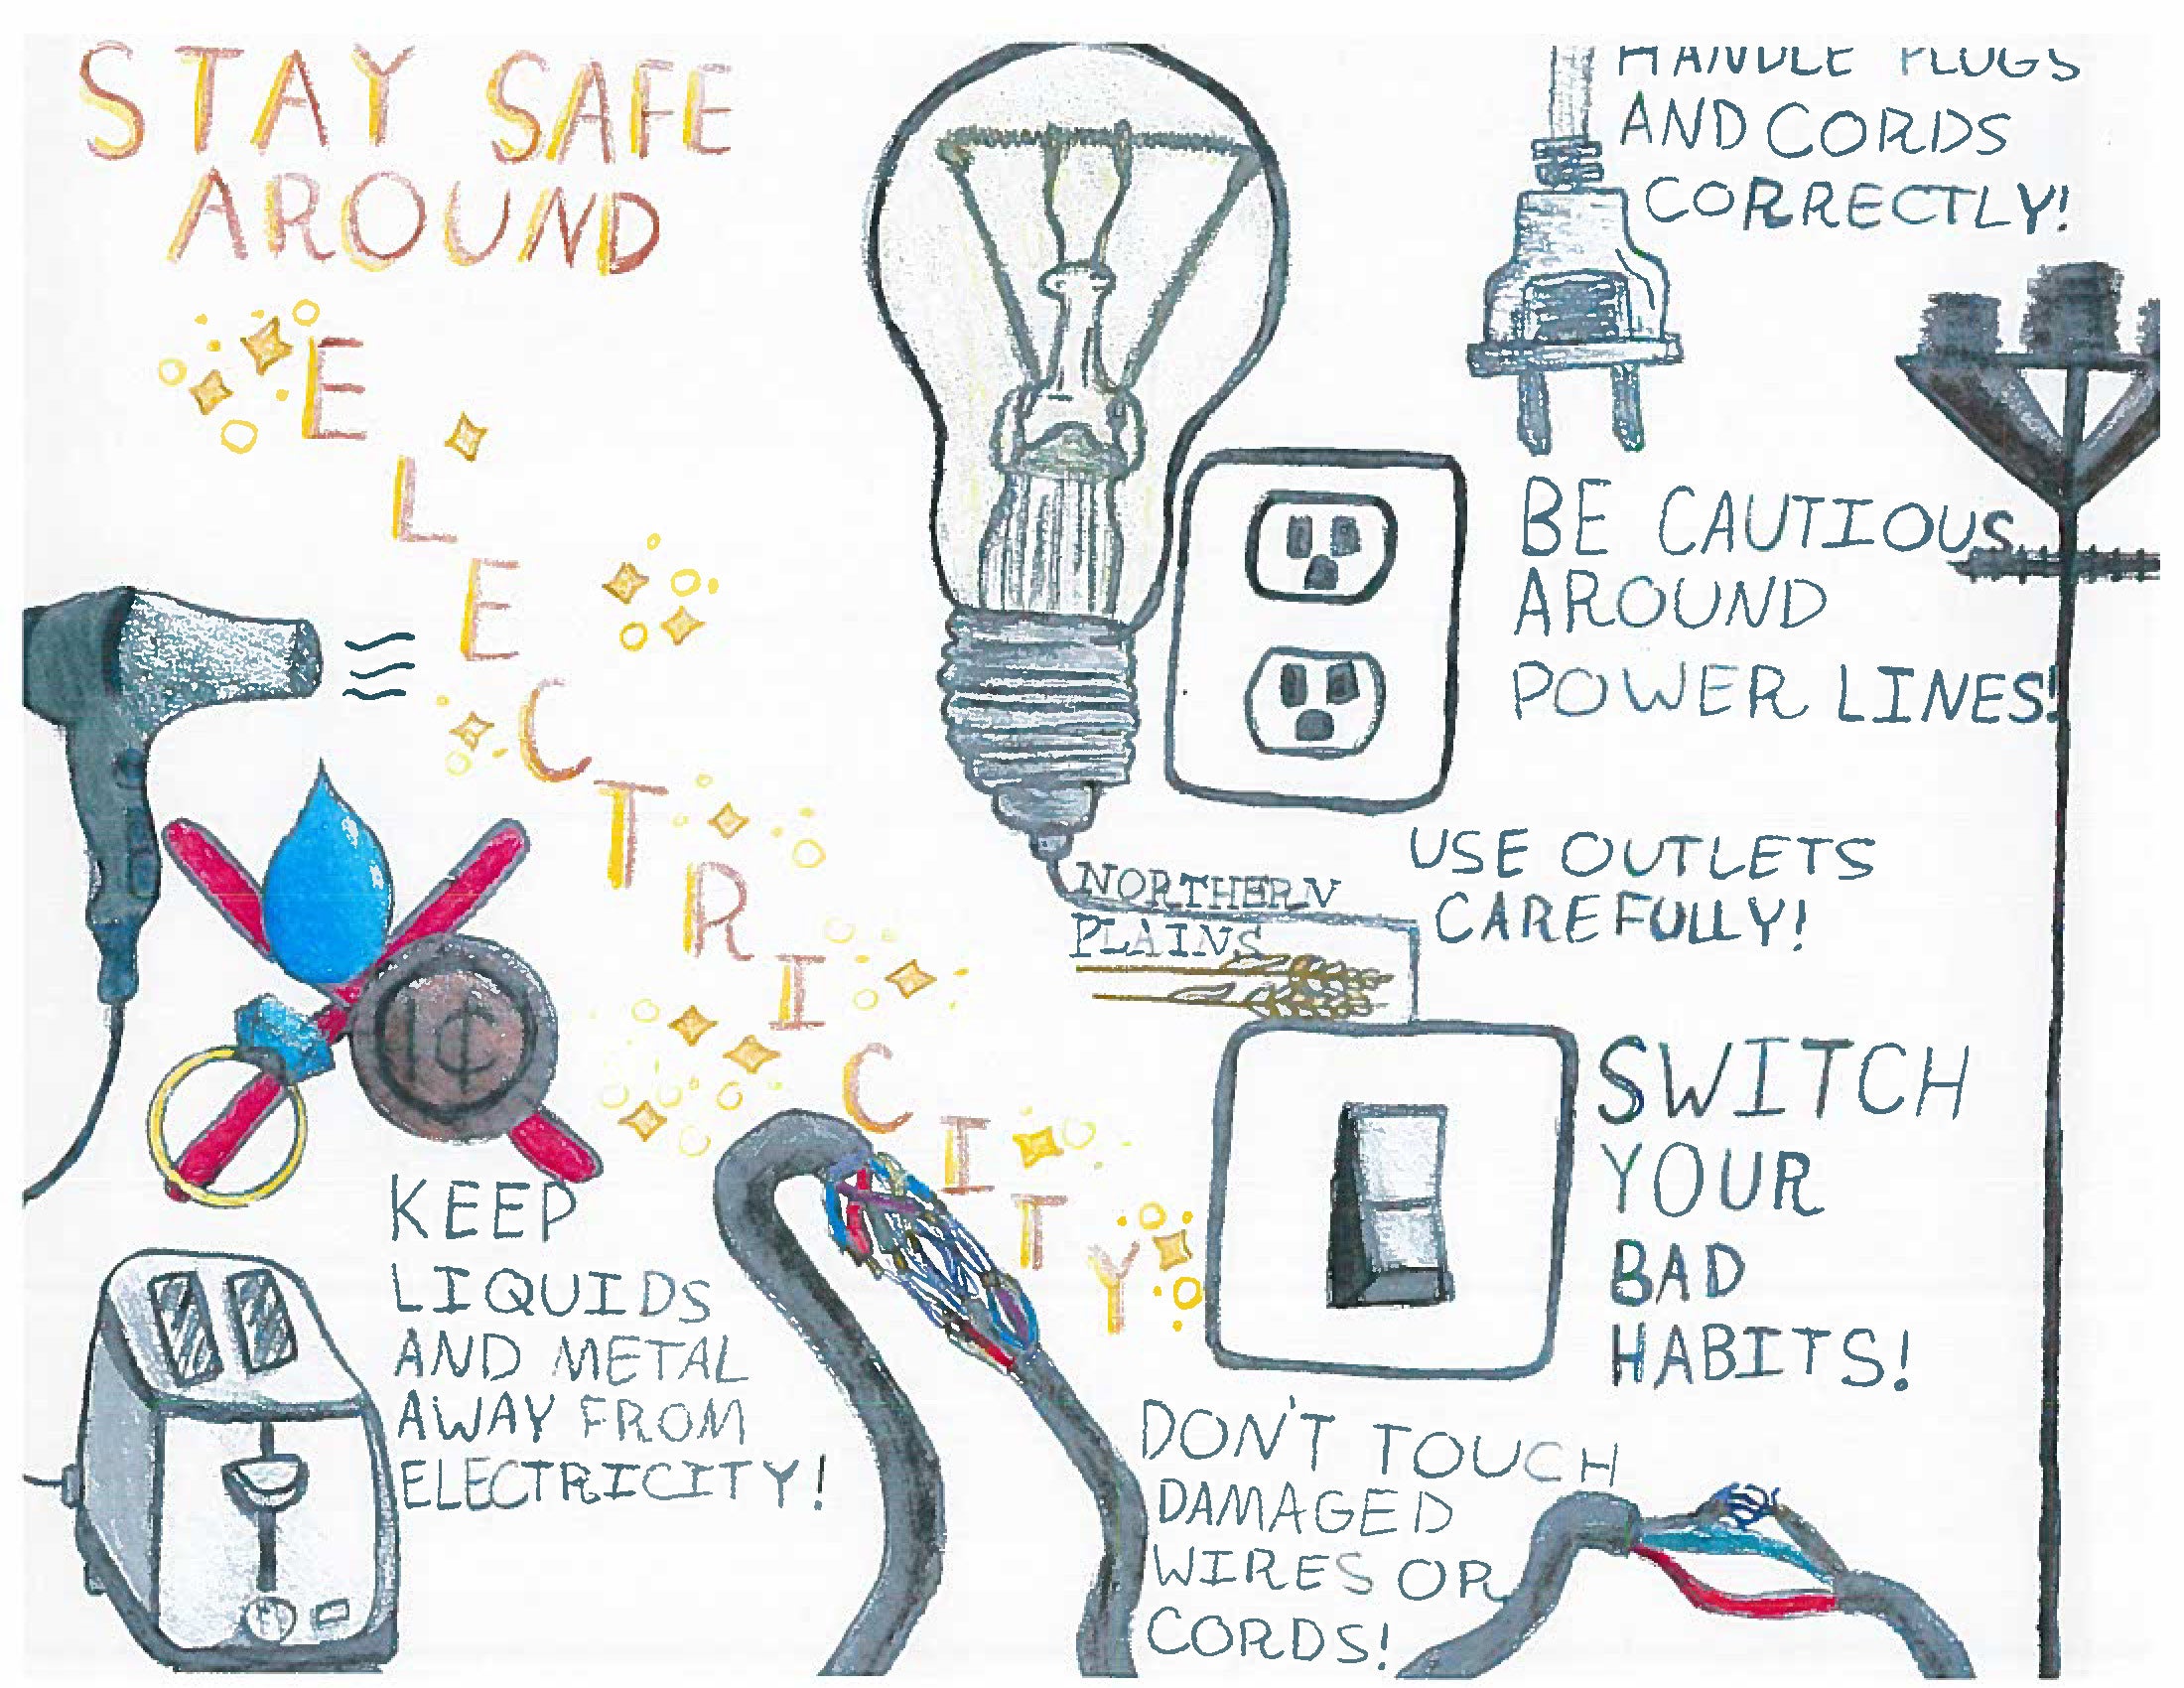 STAY SAFE
AROUND
ELECTRICITY
HANDLE PLUGS
AND CORDS
CORRECTLY!
BE CAUTIOUS
AROUND
POWER LINES!
USE OUTLETS
CAREFULLY!
NORTHERN
PLAINS
1¢
SWITCH
YOUR
BAD
HABITS!
KEEP
LIQUIDS
AND METAL
AWAY FROM
ELECTRICITY!
DON'T TOUCH
DAMAGED
WIRES OR
CORDS!